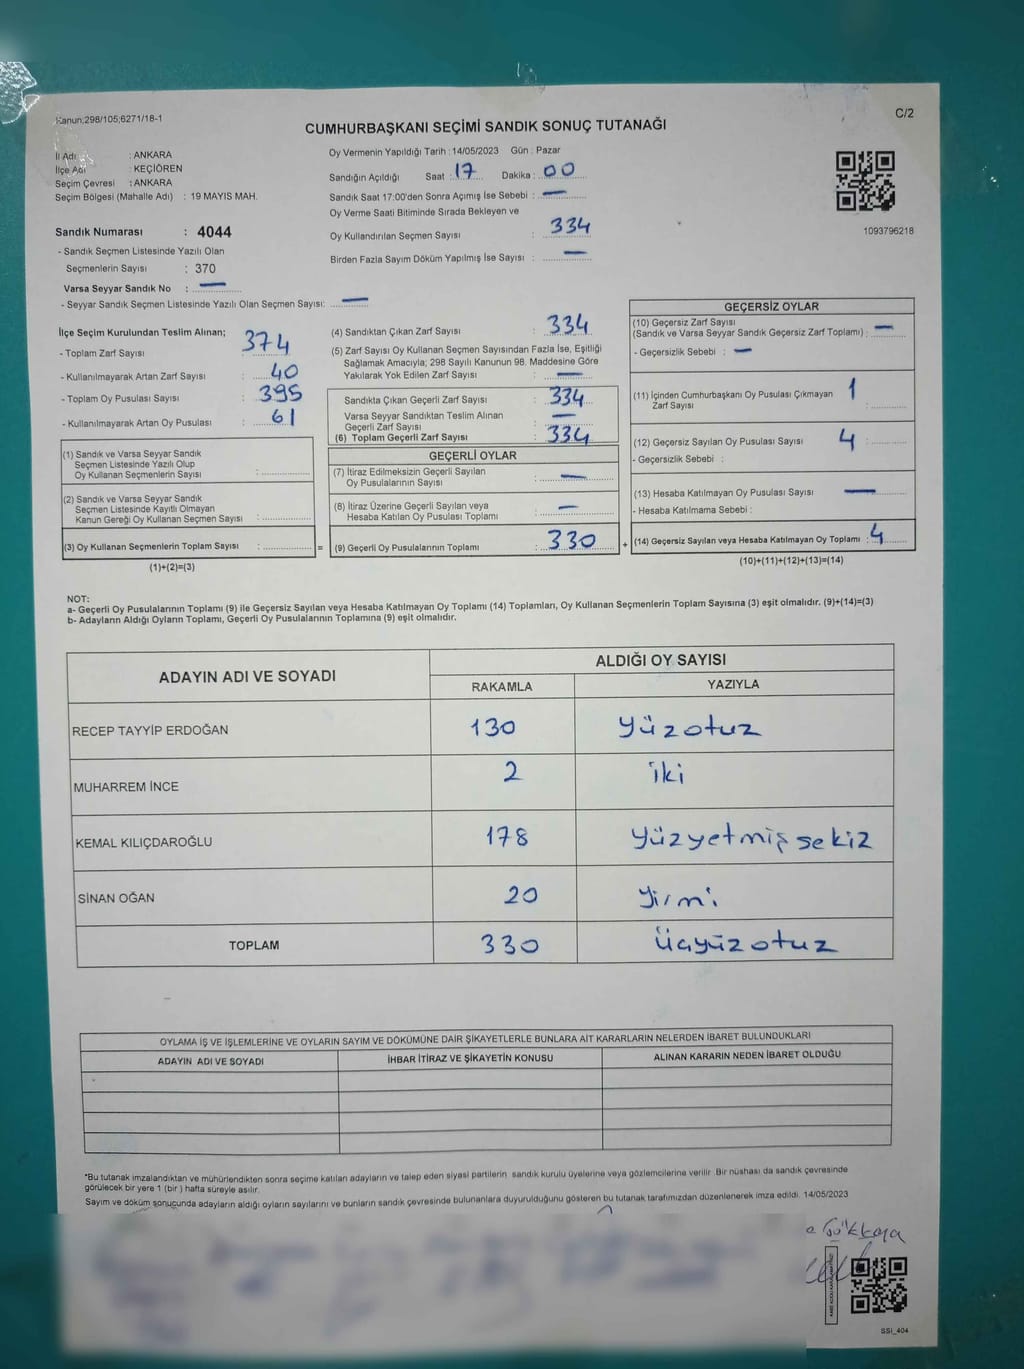 Kanun;298/105;6271/18-1
C/2
CUMHURBAŞKANI SEÇİMİ SANDIK SONUÇ TUTANAĞI
İl Adı : ANKARA
İlçe Adı : KEÇİÖREN
Seçim Çevresi : ANKARA
Seçim Bölgesi (Mahalle Adı) : 19 MAYIS MAH.
Sandık Numarası : 4044
- Sandık Seçmen Listesinde Yazılı Olan
Seçmenlerin Sayısı : 370
Varsa Seyyar Sandık No : —
- Seyyar Sandık Seçmen Listesinde Yazılı Olan Seçmen Sayısı: —
Oy Vermenin Yapıldığı Tarih : 14/05/2023 Gün : Pazar
Sandığın Açıldığı Saat : 17 Dakika : 00
Sandık Saat 17:00'den Sonra Açımış İse Sebebi : —
Oy Verme Saati Bitiminde Sırada Bekleyen ve
Oy Kullandırılan Seçmen Sayısı : 334
Birden Fazla Sayım Döküm Yapılmış İse Sayısı : —
1093796218
İlçe Seçim Kurulundan Teslim Alınan;
- Toplam Zarf Sayısı : 374
- Kullanılmayarak Artan Zarf Sayısı : 40
- Toplam Oy Pusulası Sayısı : 395
- Kullanılmayarak Artan Oy Pusulası : 61
(1) Sandık ve Varsa Seyyar Sandık
Seçmen Listesinde Yazılı Olup
Oy Kullanan Seçmenlerin Sayısı :
(2) Sandık ve Varsa Seyyar Sandık
Seçmen Listesinde Kayıtlı Olmayan
Kanun Gereği Oy Kullanan Seçmen Sayısı :
(3) Oy Kullanan Seçmenlerin Toplam Sayısı : =
(1)+(2)=(3)
(4) Sandıktan Çıkan Zarf Sayısı : 334
(5) Zarf Sayısı Oy Kullanan Seçmen Sayısından Fazla İse, Eşitliği
Sağlamak Amacıyla; 298 Sayılı Kanunun 98. Maddesine Göre
Yakılarak Yok Edilen Zarf Sayısı : —
Sandıkta Çıkan Geçerli Zarf Sayısı : 334
Varsa Seyyar Sandıktan Teslim Alınan
Geçerli Zarf Sayısı : —
(6) Toplam Geçerli Zarf Sayısı : 334
GEÇERLİ OYLAR
(7) İtiraz Edilmeksizin Geçerli Sayılan
Oy Pusulalarının Sayısı : —
(8) İtiraz Üzerine Geçerli Sayılan veya
Hesaba Katılan Oy Pusulası Toplamı : —
(9) Geçerli Oy Pusulalarının Toplamı : 330 +
GEÇERSİZ OYLAR
(10) Geçersiz Zarf Sayısı
(Sandık ve Varsa Seyyar Sandık Geçersiz Zarf Toplamı) : —
- Geçersizlik Sebebi : —
(11) İçinden Cumhurbaşkanı Oy Pusulası Çıkmayan
Zarf Sayısı : 1
(12) Geçersiz Sayılan Oy Pusulası Sayısı : 4
- Geçersizlik Sebebi :
(13) Hesaba Katılmayan Oy Pusulası Sayısı : —
- Hesaba Katılmama Sebebi :
(14) Geçersiz Sayılan veya Hesaba Katılmayan Oy Toplamı : 4
(10)+(11)+(12)+(13)=(14)
NOT:
a- Geçerli Oy Pusulalarının Toplamı (9) ile Geçersiz Sayılan veya Hesaba Katılmayan Oy Toplamı (14) Toplamları, Oy Kullanan Seçmenlerin Toplam Sayısına (3) eşit olmalıdır. (9)+(14)=(3)
b- Adayların Aldığı Oyların Toplamı, Geçerli Oy Pusulalarının Toplamına (9) eşit olmalıdır.
ADAYIN ADI VE SOYADI
ALDIĞI OY SAYISI
RAKAMLA YAZIYLA
RECEP TAYYİP ERDOĞAN 130 Yüzotuz
MUHARREM İNCE 2 iki
KEMAL KILIÇDAROĞLU 178 Yüzyetmişsekiz
SİNAN OĞAN 20 Yirmi
TOPLAM 330 Üçyüzotuz
OYLAMA İŞ VE İŞLEMLERİNE VE OYLARIN SAYIM VE DÖKÜMÜNE DAİR ŞİKAYETLERLE BUNLARA AİT KARARLARIN NELERDEN İBARET BULUNDUKLARI
ADAYIN ADI VE SOYADI İHBAR İTİRAZ VE ŞİKAYETİN KONUSU ALINAN KARARIN NEDEN İBARET OLDUĞU
*Bu tutanak imzalandıktan ve mühürlendikten sonra seçime katılan adayların ve talep eden siyasi partilerin sandık kurulu üyelerine veya gözlemcilerine verilir. Bir nüshası da sandık çevresinde
görülecek bir yere 1 (bir) hafta süreyle asılır.
Sayım ve döküm sonucunda adayların aldığı oyların sayılarını ve bunların sandık çevresinde bulunanlara duyurulduğunu gösteren bu tutanak tarafımızdan düzenlenerek imza edildi. 14/05/2023
Gökkaya
SSI_404